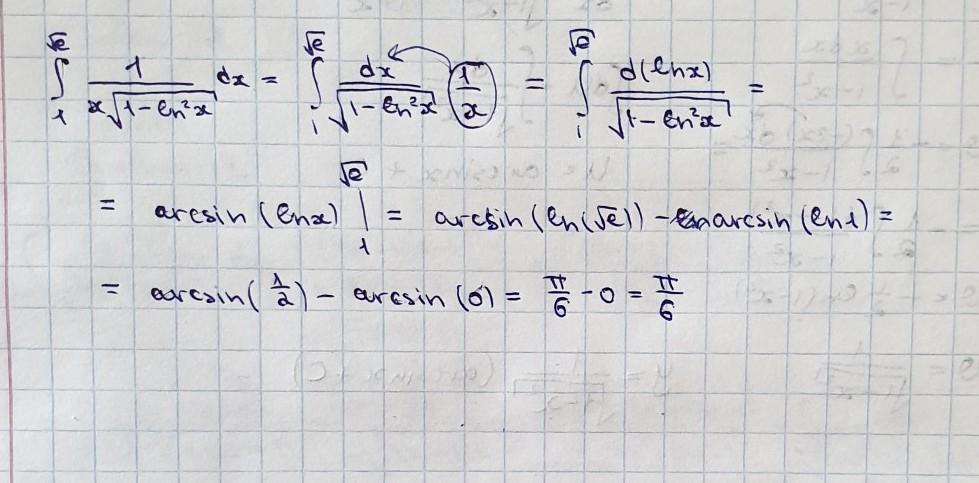 ∫₁^√e 1/(x√(1-ln²x)) dx = ∫₁^√e dx/√(1-ln²x) (1/x) = ∫₁^√e d(lnx)/√(1-ln²x) =
= arcsin(lnx) |₁^√e = arcsin(ln(√e)) - arcsin(ln1) =
= arcsin(1/2) - arcsin(0) = π/6 - 0 = π/6